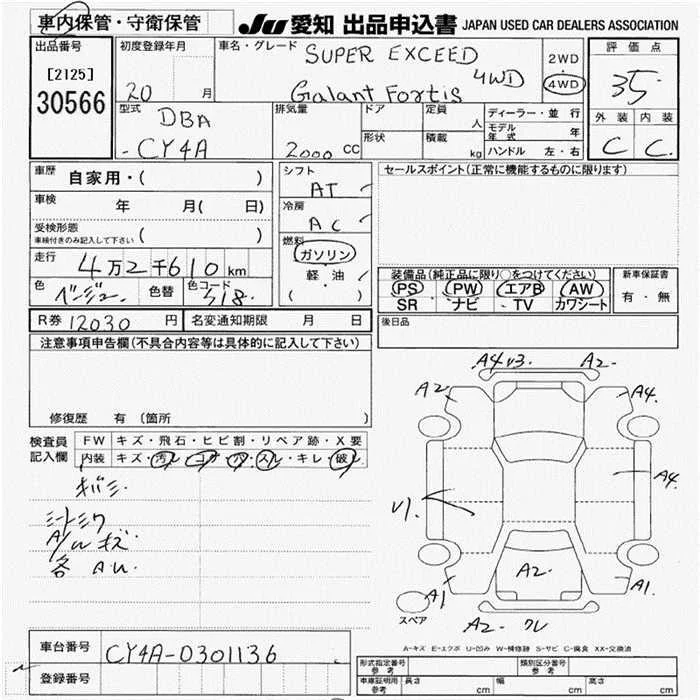 車内保管・守衛保管 JU 愛知 出品申込書 JAPAN USED CAR DEALERS ASSOCIATION
出品番号 初度登録年月 車名・グレード SUPER EXCEED 2WD 評価点
[2125] 4WD 4WD 35
30566 20 月 Galant Fortis
型式 DBA 排気量 ドア 定員 人 ディーラー・並行 外装 内装
モデル年式 年
-CY4A 2000 cc 形状 積載 kg ハンドル 左・右 C C.
車歴 自家用・( ) シフト AT セールスポイント(正常に機能するものに限ります)
車検 年 月( 日) 冷房 AC
受検形態 ( )
車検付きのみ記入して下さい
燃料 ガソリン
走行 4万2千610km 軽油 装備品(純正品に限り○をつけてください) 新車保証書
色 ベージュ 色替 色コード 318. ( ) PS PW エアB AW 有・無
SR ナビ・TV カワシート
R券 12030 円 名変通知期限 月 日 後日品
注意事項申告欄(不具合内容等は具体的に記入して下さい)
A4 A2-
A2 A4.
修復歴 有(箇所 )
検査員 FW キズ・飛石・ヒビ割・リペア跡・X要
記入欄 内装 キズ・汚レ・コゲ・穴・スレ・キレ・破レ
キバミ A4
シートシワ
A/W キズ
各 A.U.
A2-
A1 A1.
スペア A2-
車台番号 CY4A-0301136 A-キズ E-エクボ U-凹み W-補修跡 S-サビ C-腐食 XX-交換済
形式指定番号 参考 類別区分番号 参考
登録番号 車庫証明用 参考 長さ cm 幅 cm 高さ cm